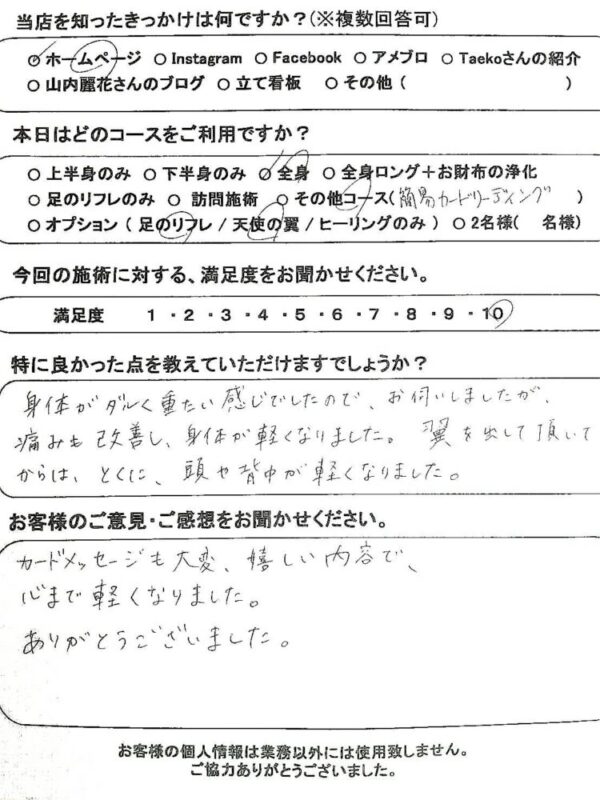 当店を知ったきっかけは何ですか?(※複数回答可)
○ ホームページ ○ Instagram ○ Facebook ○ アメブロ ○ Taekoさんの紹介
○ 山内麗花さんのブログ ○ 立て看板 ○ その他 ( )
本日はどのコースをご利用ですか?
○ 上半身のみ ○ 下半身のみ ○ 全身 ○ 全身ロング+お財布の浄化
○ 足のリフレのみ ○ 訪問施術 ○ その他コース(簡易カードリーディング )
○ オプション ( 足のリフレ / 天使の翼 / ヒーリングのみ ) ○ 2名様( 名様)
今回の施術に対する、満足度をお聞かせください。
満足度 1 ・ 2 ・ 3 ・ 4 ・ 5 ・ 6 ・ 7 ・ 8 ・ 9 ・ 10
特に良かった点を教えていただけますでしょうか?
身体がダルく重たい感じでしたので、お伺いしましたが、
痛みも改善し、身体が軽くなりました。 翼を出して頂いて
からは、とくに、頭や背中が軽くなりました。
お客様のご意見・ご感想をお聞かせください。
カードメッセージも大変、嬉しい内容で、
心まで軽くなりました。
ありがとうございました。
お客様の個人情報は業務以外には使用致しません。
ご協力ありがとうございました。